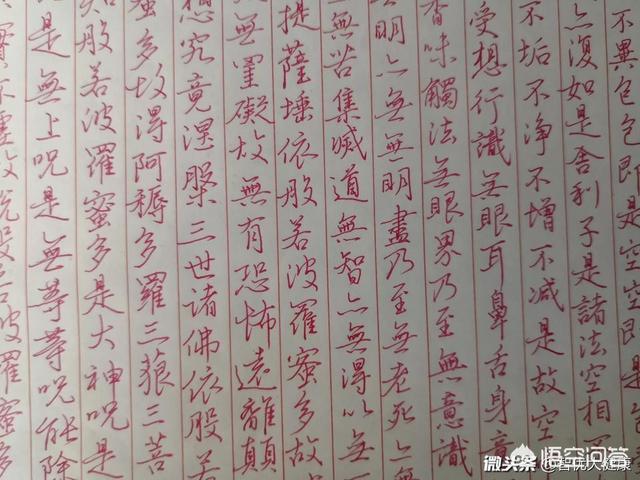 不異色色即是空空即是
亦復如是舍利子是諸法空相
不垢不净不增不减是故空
受想行識無眼耳鼻舌身意
香味觸法無眼界乃至無意識
明亦無無明盡乃至無老死亦無
無苦集滅道無智亦無得以無
提薩埵依般若波羅蜜多故
無罣礙故無有恐怖遠離顛
想究竟涅槃三世诸佛依般若
蜜多故得阿耨多羅三藐三菩
知般若波羅蜜多是大神呪是
是無上呪是無等等呪能除
實不虚故説般若波羅蜜多
微头条
悟空问答